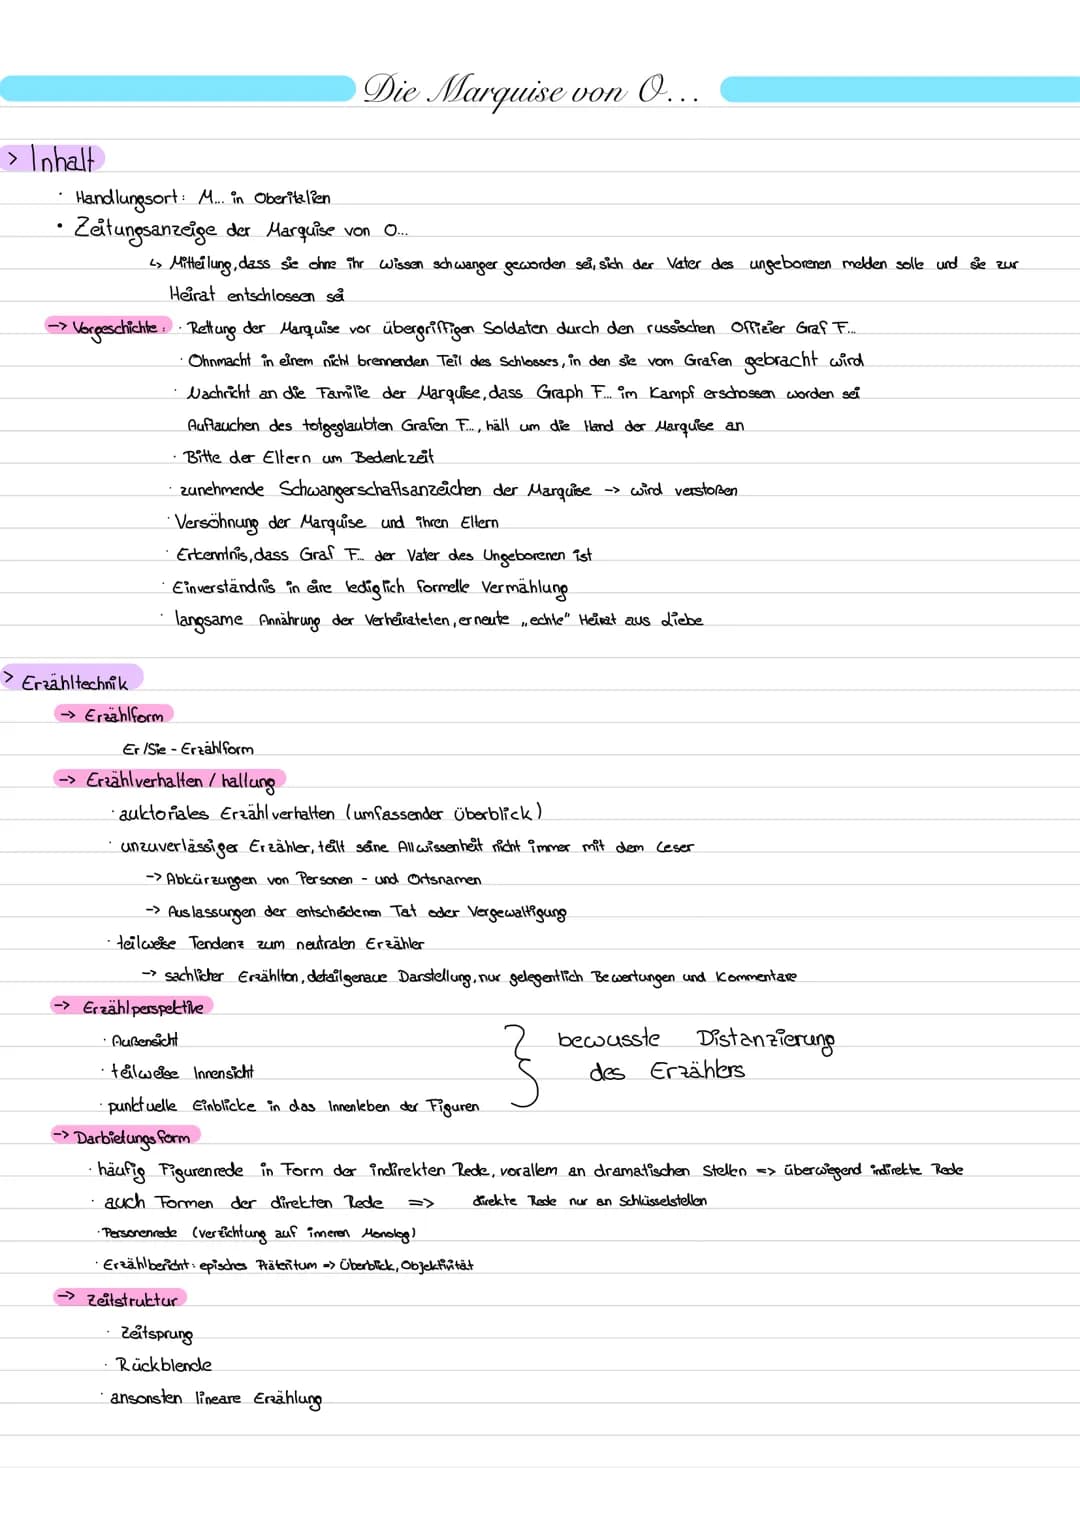 Die Marquise von O...
> Inhalt
· Handlungsort: M... in Oberitalien
· Zeitungsanzeige der Marquise von O...
↳ Mitteilung, dass sie ohne ihr Wissen schwanger geworden sei, sich der Vater des ungeborenen melden solle und sie zur
Heirat entschlossen sei
-> Vorgeschichte: · Rettung der Marquise vor übergriffigen Soldaten durch den russischen Offizier Graf F...
· Ohnmacht in einem nicht brennenden Teil des Schlosses, in den sie vom Grafen gebracht wird
· Nachricht an die Familie der Marquise, dass Graph F... im Kampf erschossen worden sei
Auftauchen des totgeglaubten Grafen F..., hält um die Hand der Marquise an
· Bitte der Eltern um Bedenkzeit
· zunehmende Schwangerschaftsanzeichen der Marquise -> wird verstoßen
· Versöhnung der Marquise und ihren Eltern
· Erkenntnis, dass Graf F... der Vater des Ungeborenen ist
· Einverständnis in eine lediglich formelle Vermählung
· langsame Annährung der Verheirateten, erneute „echte" Heirat aus Liebe
> Erzähltechnik
-> Erzählform
Er/Sie - Erzählform
-> Erzählverhalten / haltung
· auktoriales Erzählverhalten (umfassender Überblick)
· unzuverlässiger Erzähler, teilt seine Allwissenheit nicht immer mit dem Leser
-> Abkürzungen von Personen - und Ortsnamen
-> Auslassungen der entscheidenen Tat oder Vergewaltigung
· teilweise Tendenz zum neutralen Erzähler
-> sachlicher Erzählton, detailgenaue Darstellung, nur gelegentlich Bewertungen und Kommentare
-> Erzählperspektive
· Außensicht
· teilweise Innensicht
· punktuelle Einblicke in das Innenleben der Figuren
} bewusste Distanzierung
des Erzählers
-> Darbietungsform
· häufig Figurenrede in Form der indirekten Rede, vorallem an dramatischen Stellen => überwiegend indirekte Rede
· auch Formen der direkten Rede => direkte Rede nur an Schlüsselstellen
· Personenrede (verzichtung auf inneren Monolog)
· Erzählbericht: episches Präteritum => Überblick, Objektivität
-> Zeitstruktur
· Zeitsprung
· Rückblende
· ansonsten lineare Erzählung